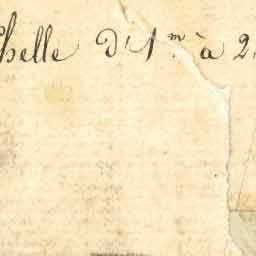 chelle d'1.m à 2